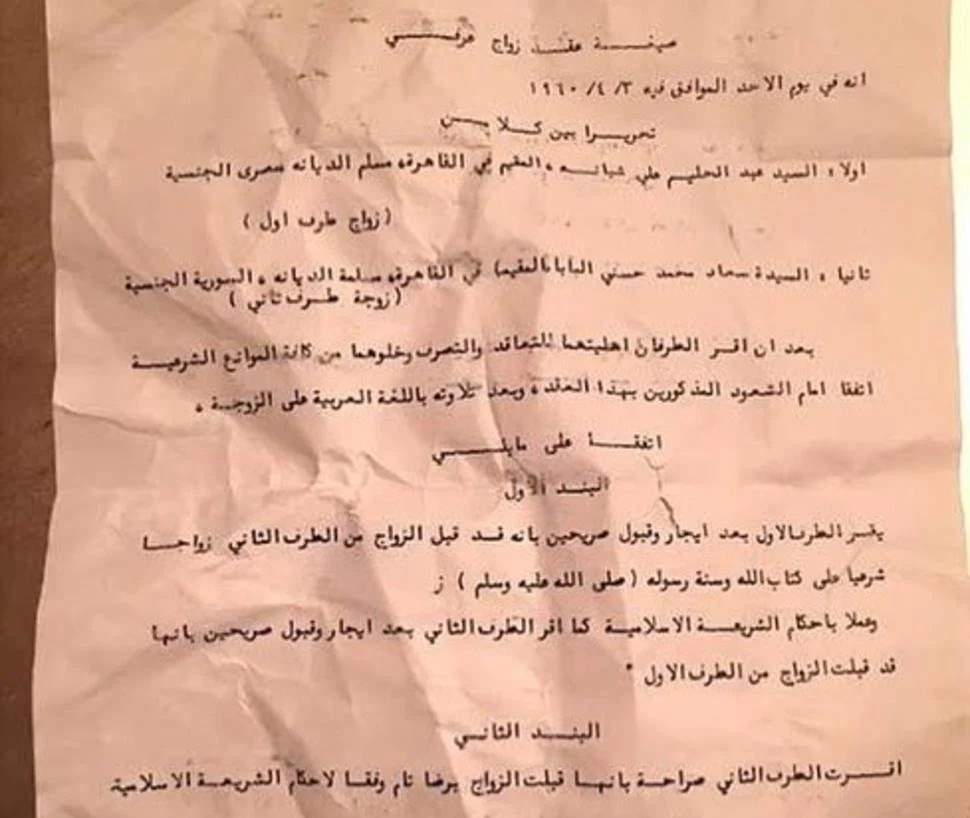 صيغــة عقــد زواج عرفــي
انه في يوم الاحد الموافق فيه ٣/ ٤/ ١٩٦٠
تحريرا بين كلا من
اولا ، السيد عبد الحليم علي شبانــه ، المقيم في القاهرة، مسلم الديانه مصرى الجنسية
( زواج طرف اول )
ثانيا ، السيدة سعاد محمد حسني البابا المقيما في القاهرة، مسلمة الديانه ، السورية الجنسية
( زوجة طــرف ثاني )
بعد ان اقــر الطرفان اهليتهما للتعاقد والتصرف وخلوهما من كافة الموانع الشرعيــة
اتفقا امام الشعود المذكورين بهذا العقد، وبعد تلاوته باللغة العربية على الزوجــة ،
اتفقــا على مايلــــي
البنــد الاول
يقــر الطرف الاول بعد ايجار وقبول صريحين بانه قــد قبل الزواج من الطرف الثاني زواجــا
شرعيا على كتاب الله وسنة رسوله ( صلى الله عليه وسلم ) ز
وعملا باحكام الشريعــة الاسلاميـة كما اقر الطرف الثاني بعد ايجار وقبول صريحين بانها
قد قبلت الزواج من الطرف الاول "
البنــد الثاني
اقــرت الطرف الثاني صراحة بانـها قبلت الزواج برضا تام وفقا لاحكام الشريعــة الاسلاميـة